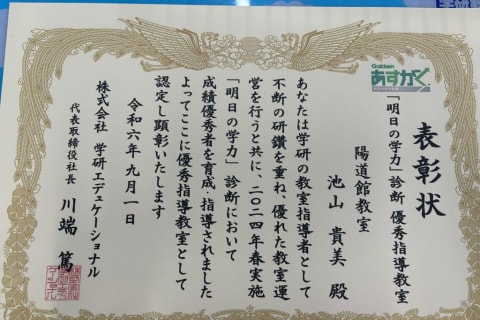 表彰状
「明日の学力」診断 優秀指導教室
陽道館教室
池山 貴美 殿
あなたは学研の教室指導者として
不断の研鑽を重ね、優れた教室運
営を行うと共に、二〇二四年春実施
「明日の学力」診断において
成績優秀者を育成、指導されました
よってここに優秀指導教室として
認定し顕彰いたします
令和六年九月一日
株式会社 学研エデュケーショナル
代表取締役社長 川端 篤
Gakken
あすがく